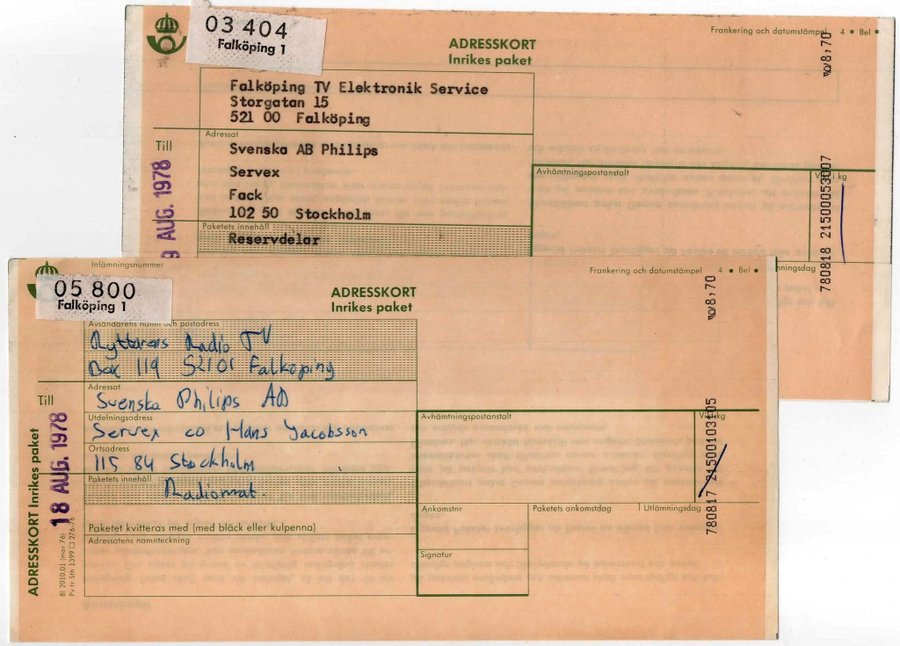 03 404
Falköping 1
ADRESSKORT
Inrikes paket
Frankering och datumstämpel 4 • Bel •
8,70
Falköping TV Elektronik Service
Storgatan 15
521 00 Falköping
Till
Adressat
Svenska AB Philips
Servex
Fack
102 50 Stockholm
Paketets innehåll
Reservdelar
AUG. 1978
Avhämtningspostanstalt
kg
780818 21500053007
Inlämningsnummer
05 800
Falköping 1
ADRESSKORT
Inrikes paket
Frankering och datumstämpel 4 • Bel •
8,70
Avsändarens namn och postadress
Ryttarens Radio TV
Box 119 521 01 Falköping
Till
Adressat
Svenska Philips AB
Utdelningsadress
Servex co Hans Jacobsson
Ortsadress
115 84 Stockholm
Paketets innehåll
Radiomat.
Paketet kvitteras med (med bläck eller kulpenna)
Adressatens namnteckning
Avhämtningspostanstalt
kg
780817 21500103105
Ankomstnr
Paketets ankomstdag
Utlämningsdag
Signatur
ADRESSKORT Inrikes paket
18 AUG. 1978
Bl 2010.01 (mar. 76)